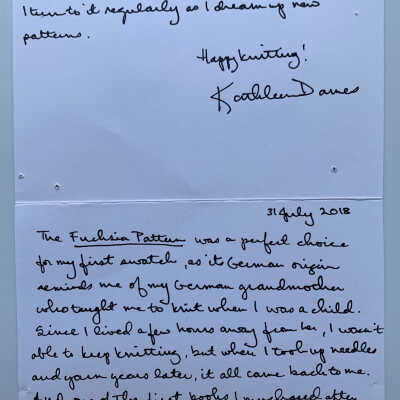 I turn to it regularly as I dream up new
patterns.
Happy knitting!
Kathleen Dames
31 July 2018
The Fuchsia Pattern was a perfect choice
for my first swatch, as its German origin
reminds me of my German grandmother
who taught me to knit when I was a child.
Since I lived a few hours away from her, I wasn't
able to keep knitting, but when I took up needles
and yarn years later, it all came back to me.
And one of the first books I purchased after